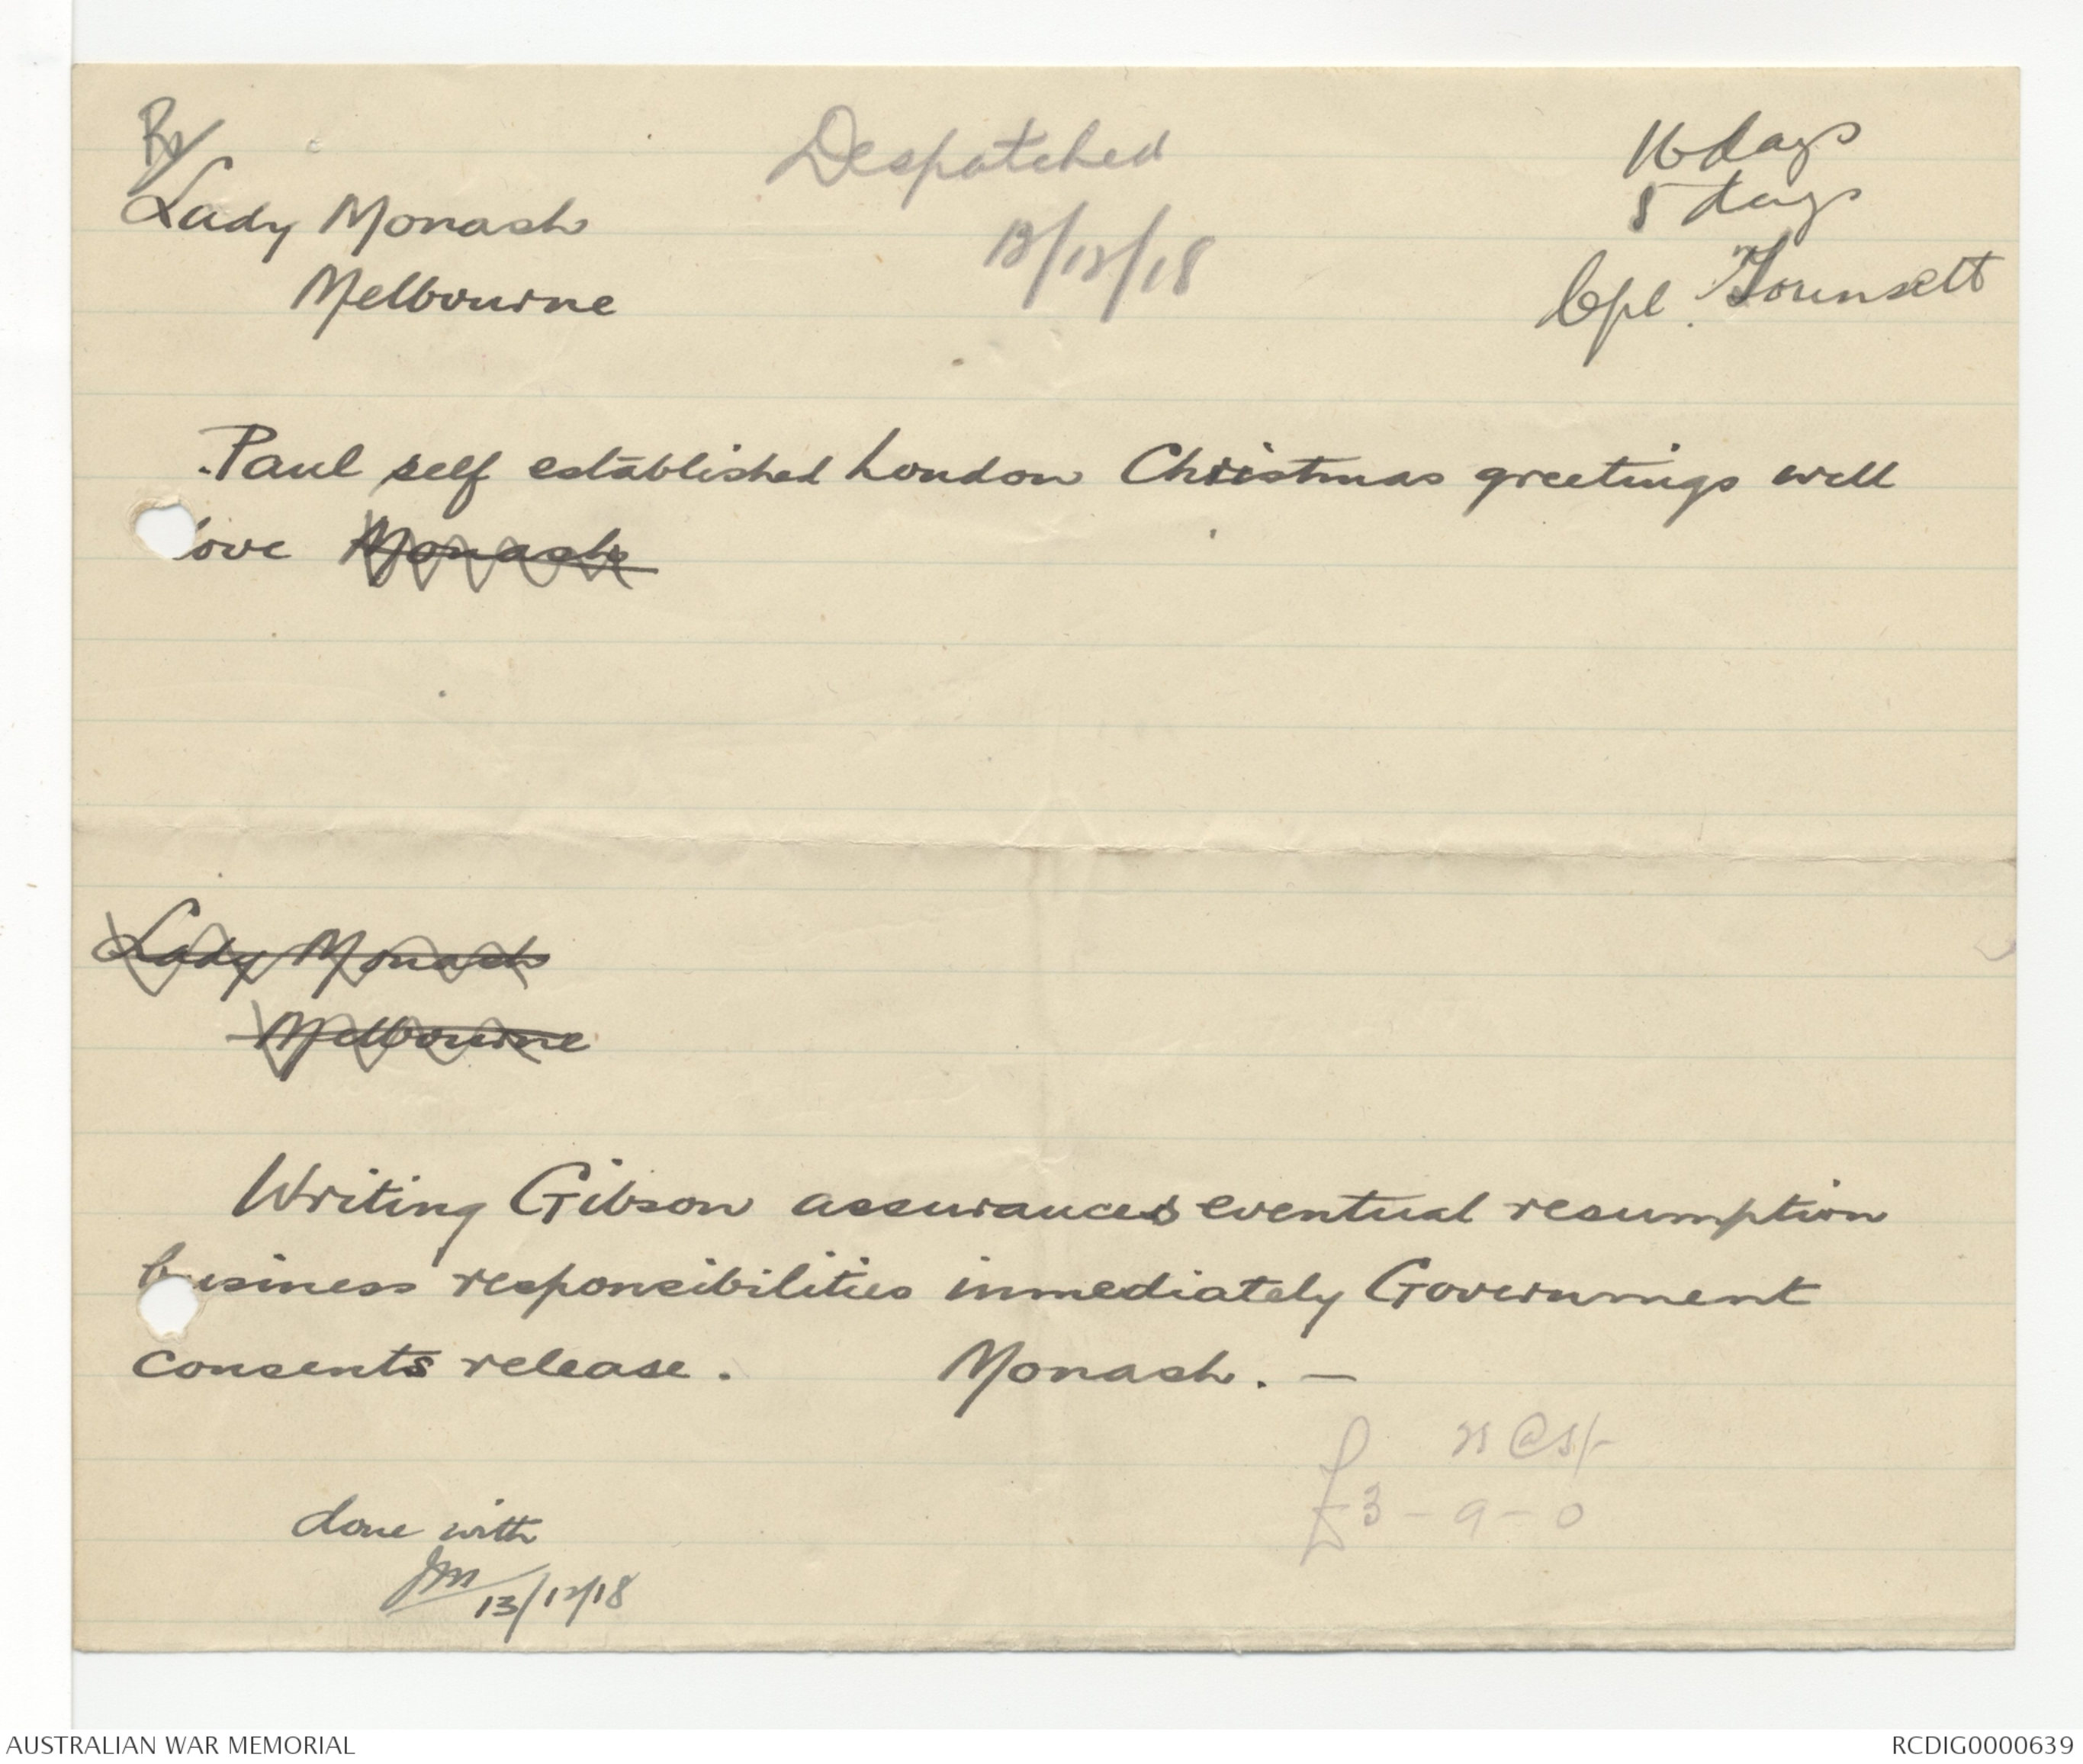 Lady Monash
Melbourne
Despatched
13/12/18
16 days
8 days
Cpl. Tounsett
Paul self established London Christmas greetings well
love Monash
Lady Monash
Melbourne
Writing Gibson assurances eventual resumption
business responsibilities immediately Government
consents release. Monash. —
£3 - 9 - 0
done with
JM 13/12/18
AUSTRALIAN WAR MEMORIAL
RCDIG0000639